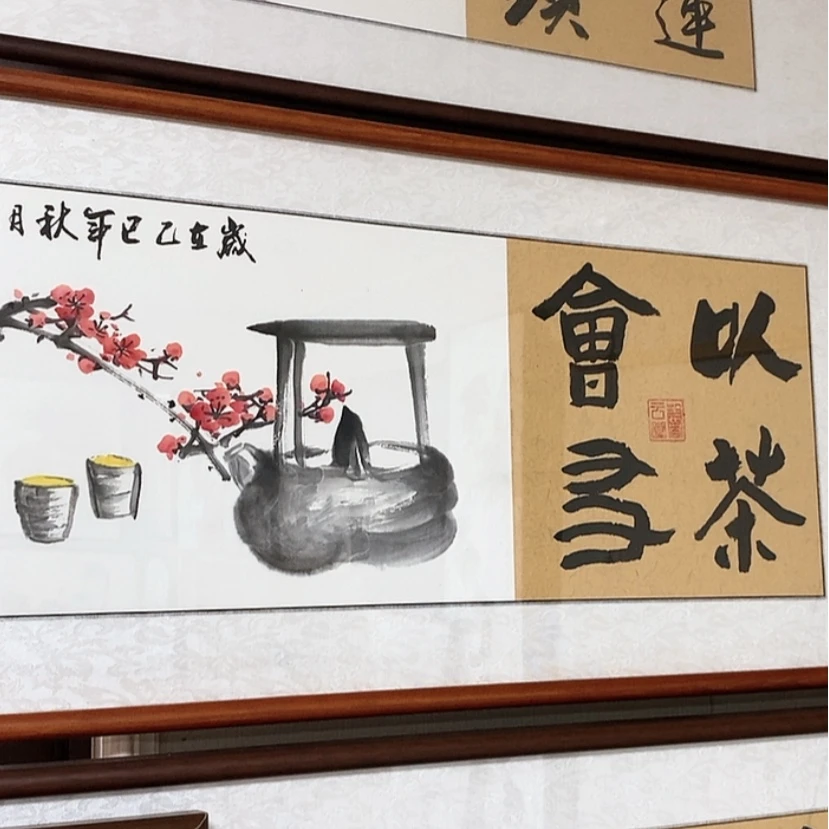 以茶
會友
歲在乙巳年秋月